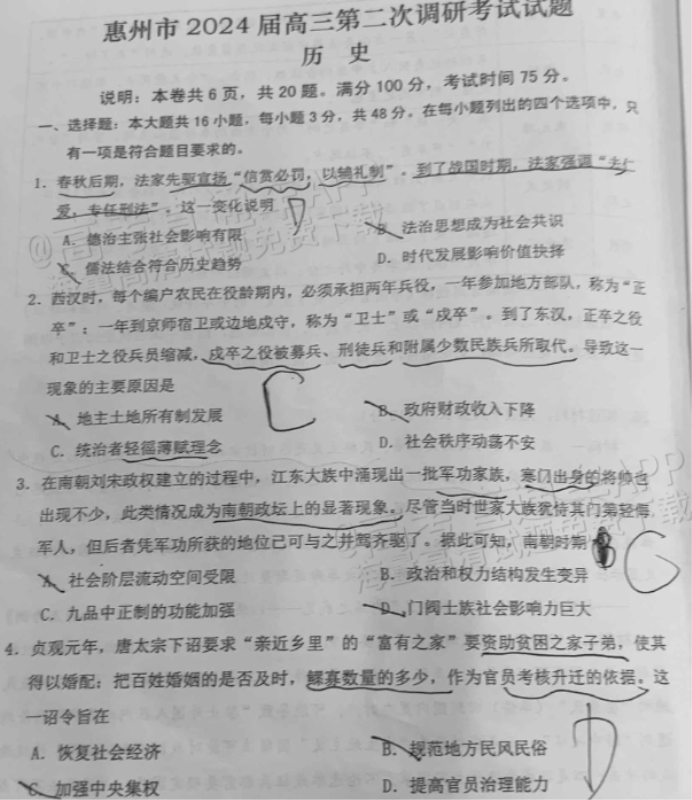 惠州市 2024 届高三第二次调研考试试题
历 史
说明：本卷共 6 页，共 20 题。满分 100 分，考试时间 75 分。
一、选择题：本大题共 16 小题，每小题 3 分，共 48 分。在每小题列出的四个选项中，只
有一项是符合题目要求的。
1．春秋后期，法家先驱宣扬“信赏必罚，以辅礼制”。到了战国时期，法家强调“去仁
爱，专任刑法”。这一变化说明 D
A．德治主张社会影响有限 B．法治思想成为社会共识
C．儒法结合符合历史趋势 D．时代发展影响价值抉择
2．西汉时，每个编户农民在役龄期内，必须承担两年兵役，一年参加地方部队，称为“正
卒”；一年到京师宿卫或边地戍守，称为“卫士”或“戍卒”。到了东汉，正卒之役
和卫士之役兵员缩减，戍卒之役被募兵、刑徒兵和附属少数民族兵所取代。导致这一
现象的主要原因是 C
A．地主土地所有制发展 B．政府财政收入下降
C．统治者轻徭薄赋理念 D．社会秩序动荡不安
3．在南朝刘宋政权建立的过程中，江东大族中涌现出一批军功家族，寒门出身的将帅也
出现不少，此类情况成为南朝政坛上的显著现象。尽管当时世家大族犹恃其门第轻侮
军人，但后者凭军功所获的地位已可与之并驾齐驱了。据此可知，南朝时期
A．社会阶层流动空间受限 B．政治和权力结构发生变异
C．九品中正制的功能加强 D．门阀士族社会影响力巨大
4．贞观元年，唐太宗下诏要求“亲近乡里”的“富有之家”要资助贫困之家子弟，使其
得以婚配；把百姓婚姻的是否及时，鳏寡数量的多少，作为官员考核升迁的依据。这
一诏令旨在 D
A．恢复社会经济 B．规范地方民风民俗
C．加强中央集权 D．提高官员治理能力